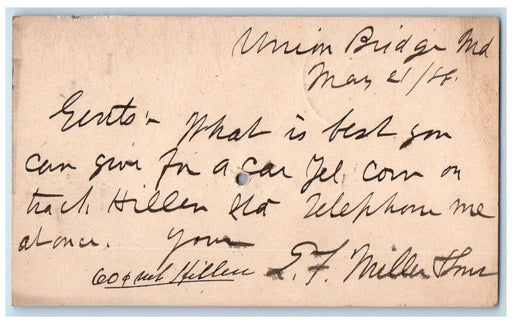 Union Bridge Md
May 21/88.
Gents:- What is best you
can give for a car Yel. Corn on
track Hillen Sta Telephone me
at once. Yours
60¢ net Hillen E. F. Miller & Sons